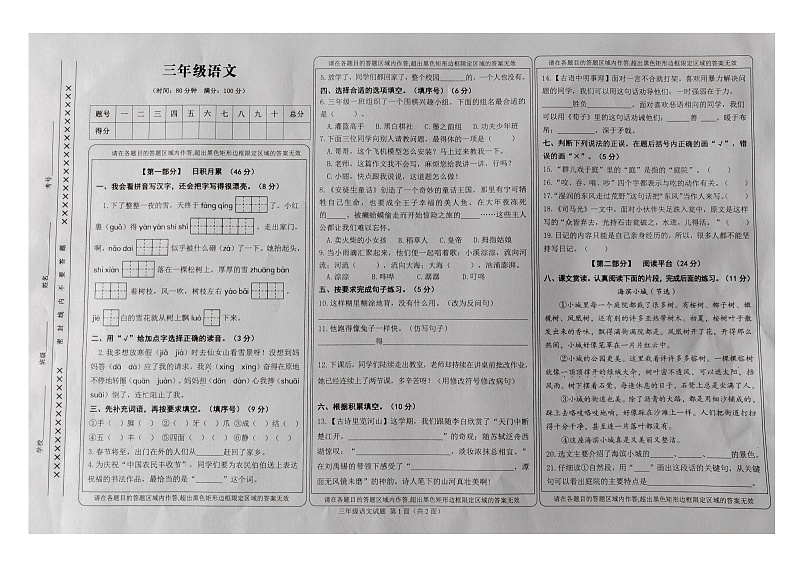 三年级语文
（时间：80分钟 满分：100分）
题号 一 二 三 四 五 六 七 八 九 十 总分
得分
请在各题目的答题区域内作答,超出黑色矩形边框限定区域的答案无效
【第一部分】 日积月累 （46分）
一、我会看拼音写汉字，还会把字写得很漂亮。（8分）
1.下了整整一夜的雪，天终于 fàng qíng 了。小红
裹（guǒ）得 yán yán shí shí ，走出家门。
啊，nǎo dai 似乎被什么砸（zá）了一下。她抬起头，
shí xiàn 落在一棵松树上。厚厚的雪 zhuāng bàn
着树枝，风一吹，树枝左右 yáo bǎi ，
jié 白的雪花就从树上飘 luò 下来。
二、用“√”给加点字选择正确的读音。（3分）
2.我多想放寒假（jiǎ jià）时去仙女山看雪景呀！没想到妈
妈答（dā dá）应了我的请求，我兴（xìng xīng）奋得在原地
不停地转圈（quān juān）。妈妈担（dān dàn）心我摔（shuāi
suāi）倒了，连忙阻止我。
三、先补充词语，再按要求填空。（填序号）（9分）
①手（ ）脚（ ） ②（ ）万（ ）一 ③（ ）爪（ ）牙 ③成（ ）结（ ）
④五（ ）丰（ ） ⑤四面（ ）（ ） ⑥（ ）静（ ）（ ）
3.春节将至，出门在外的人们从______赶回了家乡。
4.为庆祝“中国农民丰收节”，同学们要为农民伯伯送上表达
祝福的书法作品，最恰当的是“______”或“______”。
请在各题目的答题区域内作答,超出黑色矩形边框限定区域的答案无效
请在各题目的答题区域内作答,超出黑色矩形边框限定区域的答案无效
5.放学了，同学们都回家了，整个校园______的，一个人也没有。
四、选择合适的选项填空。（填序号）（6分）
6.三年级一班组织了一个围棋兴趣小组，下面的组名最合适的
是（ ）。
A.灌篮高手 B.黑白棋社 C.墨之韵组 D.功夫少年班
7.下面三位同学向别人请教问题，最得体的一项是（ ）
A.哥，这个飞机模型怎么安装？马上过来教我！
B.老师，这篇作文我不会写，麻烦您给我讲一讲，行吗？
C.小丽，快点跟我说说，这道题怎么做！
8.《安徒生童话》创造了一个奇妙的童话王国，那里有宁可牺
牲自己生命，也要成全王子幸福的美人鱼、在大年夜冻死
的______、被癞蛤蟆偷走而开始惊险之旅的______……这些主人
公都让我们难以忘怀。
A.卖火柴的小女孩 B.稻草人 C.皇帝 D.拇指姑娘
9.当小雨滴汇聚起来，他们便一起唱着歌：小溪淙淙，流向河
流；河流（ ），流向大海；大海（ ），汹涌澎湃。
A.凉凉 B.哗啦 C.潺潺 D.哗哗
五、按要求完成句子练习。（5分）
10.这样糊里糊涂地背，没有什么用。（改为反问句）
11.他跑得像兔子一样快。（仿写句子）
得
12.下课后，同学们陆续走出教室，老师却持续在讲桌前批改作业，
她已经连续上了两节课，多辛苦呀！（用修改符号修改病句）
六、根据积累填空。（10分）
13.【古诗里览河山】这学期，我们跟随李白欣赏了“天门中断
楚江开，______”的奇观；随苏轼来到西
湖惊叹：“______，淡妆浓抹总相宜。”
在刘禹锡的带领下，感受“______，潭面
无风镜未磨”的神韵，诗人笔下的山河真壮美啊！
请在各题目的答题区域内作答,超出黑色矩形边框限定区域的答案无效
请在各题目的答题区域内作答,超出黑色矩形边框限定区域的答案无效
14.【古语中明事理】面对一言不合就打架，喜欢用暴力解决问
题的同学，我们可以用这句话劝导他们：一时强弱在于力，
______胜负______。面对喜欢恶语相向的同学，我们
可以用《荀子》里的这句话劝诫他们：______善______，暖于布
帛；______，深于矛戟。
七、判断下列说法的正误。在题后括号内正确的画“√”，错
误的画“×”。（5分）
15.“群儿戏于庭”里的“庭”是指的“庭院”。（ ）
16.“咬、吞、嚼、哼”四个字都表示与吃的动作有关。（ ）
17.“湿润的东风走过荒野”这句话把“东风”当作人来写。（ ）
18.《司马光》一文中，面对小伙伴失足跌入瓮中，原文是这样
写的“众皆弃去，光持石击瓮破之，水迸，儿得活。”（ ）
19.日记的内容只能是自己亲身经历的，所以，很多人都不坚
持写日记。（ ）
【第二部分】 阅读平台（24分）
八、课文赏读。认真阅读下面的片段，完成后面的练习。（11分）
海滨小城（节选）
①小城里每一个庭院都栽了很多树。有桉树、椰子树、橄
榄树、凤凰树，还有别的许多亚热带树木。初夏，桉树叶子散
发出来的香味，飘得满街满院都是。凤凰树开了花，开得那么
热闹，小城好像笼罩在一片片红云中。
②小城的公园更美。这里栽着许许多多榕树。一棵棵榕树
就像一顶顶撑开的绿绒大伞，树叶密不透风，可以遮太阳，挡
风雨。树下摆着石凳，每逢休息的日子，石凳上总是坐满了人。
③小城的街道也美。除了沥青的大路，都是用细沙铺成的，
踩上去咯吱咯吱地响，好像踩在沙滩上一样。人们把街道打扫
得十分干净，甚至连一片落叶都没有。
④这座海滨小城真是又美丽又整洁。
20.选文主要介绍了海滨小城的______、______、______的景色。
21.仔细读①自然段，用“——”画出这段话的关键句，从关键
句可以看出庭院的主要特点是______。
请在各题目的答题区域内作答,超出黑色矩形边框限定区域的答案无效
三年级语文试题 第1面（共2面）
学校 班级 姓名 考号
密 封 线 内 不 要 答 题